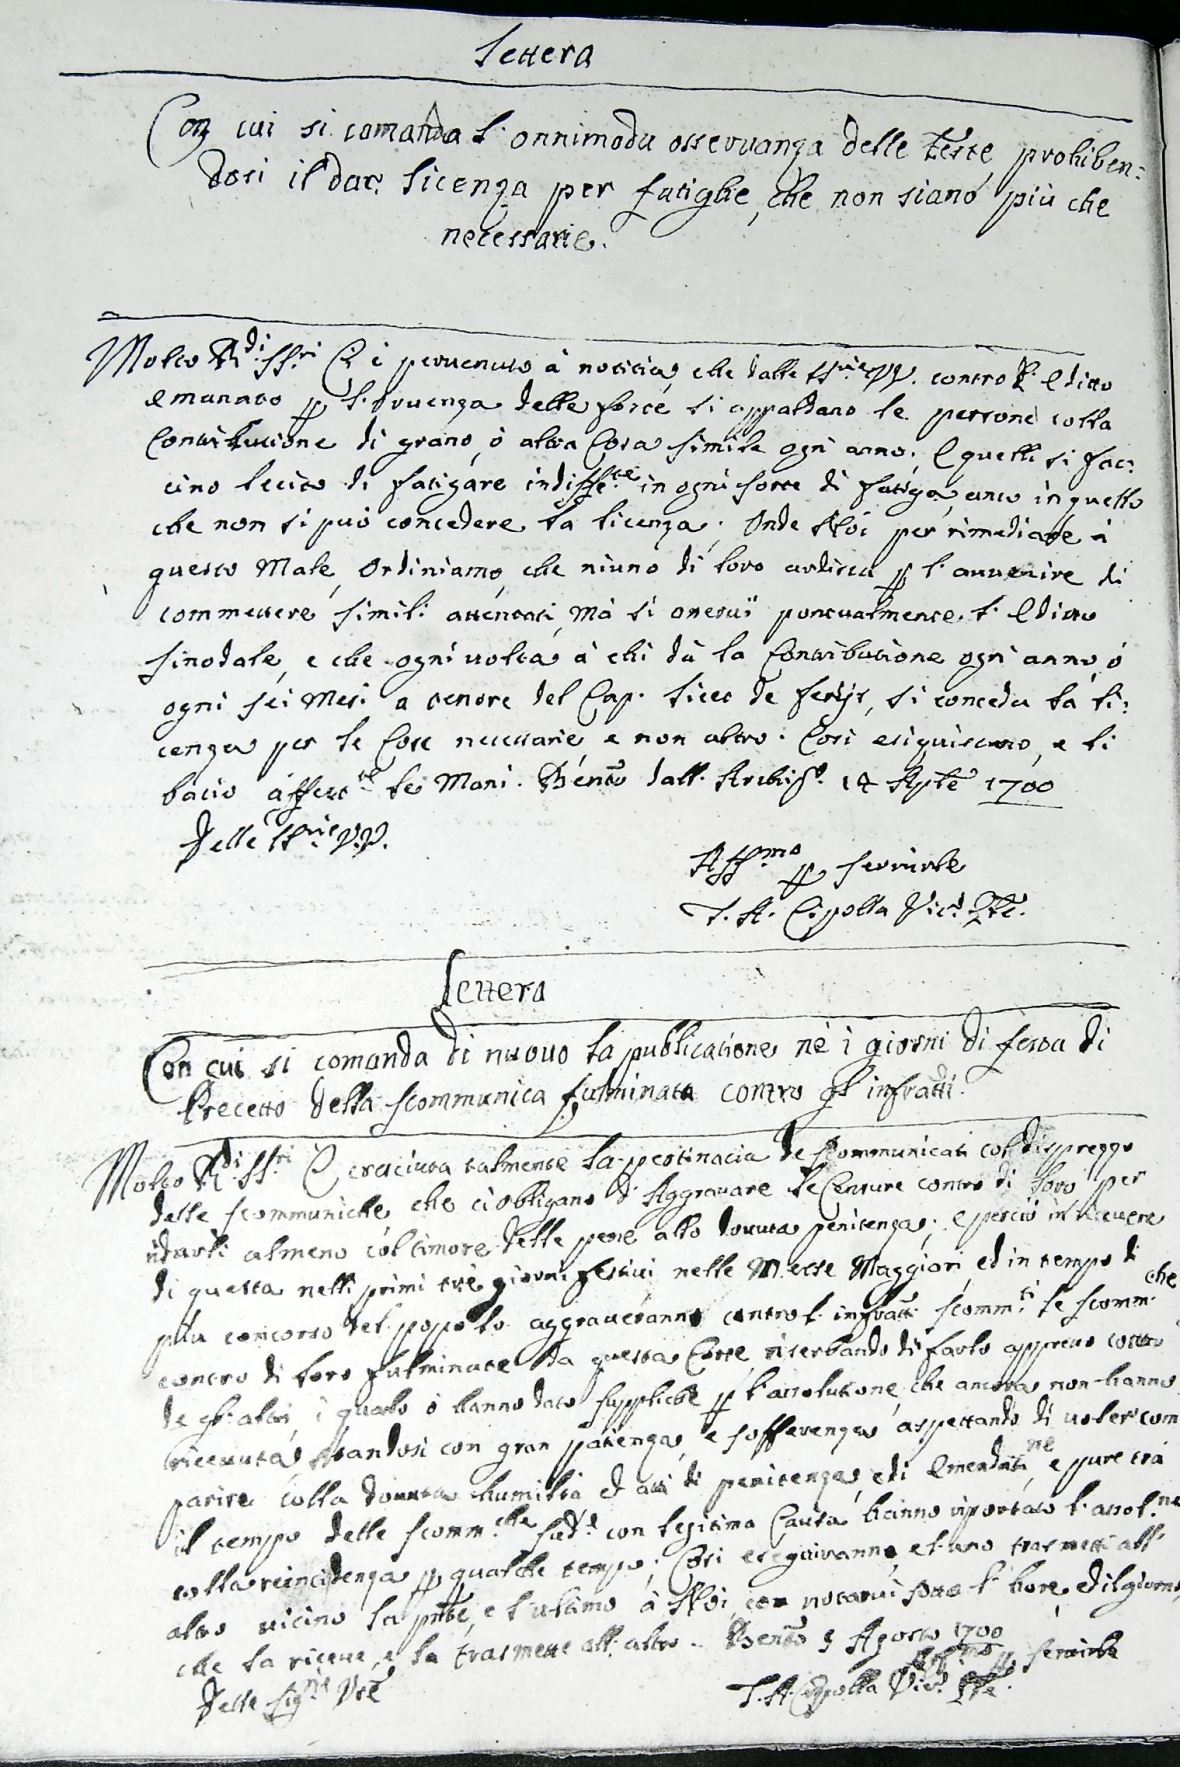 Lettera
Con cui si comanda l'onnimoda osservanza delle feste, prohiben:
dosi il dar licenza per fatighe, che non siano più che
necessarie.
Molto R.di SS.ri Ci è pervenuto à notitia, che dalle SS.rie VV. contro l'Editto
emanato p l'osservenza delle feste si appaldano le persone colla
Contributione di grano, ò altra Cosa simile ogni anno; E quelli si fac:
cino lecito di fatigare indiffe.te in ogni sorte di fatiga, anco in quello
che non si può concedere la licenza; Onde Noi per rimediare à
questo Male, Ordiniamo, che niuno di loro ardisca p l'avvenire di
commettere simili attentati, mà si osservi pontualmente l'Editto
sinodale, e che ogni volta à chi dà la Contributione ogni anno, ò
ogni sei Mesi a tenore del Cap. licet de ferijs, si conceda la li:
cenza per le Cose necessarie e non altro. Così esiguiscano, e li
bacio affett.te le Mani. Bento dall' Arcbis.o 14 Apte 1700
Delle SS.rie VV.
Aff.mo p servirle
T. A. Cipolla Vic.o Gte.
Lettera
Con cui si comanda di nuovo la publicatione nè i giorni di festa di
Precetto della scommunica fulminata contro gl' infratti.
Molto R.di SS.ri E cresciuta talmente la pertinacia de scommunicati col dispreggo
delle scommuniche, che ci obligano d'Aggravare le Censure contro di loro per
ridurli almeno col timore delle pene alla dovuta penitenza; e perciò in ricevere
di questa nelli primi trè giorni festivi nelle Messe Maggiori, ed in tempo di
più concorso del popolo aggraveranno contro l'infratti scomm.ti le scomm.che
contro di loro fulminate da questa Corte, riserbando di farlo appresso contro
de gl'altri, i quali ò hanno dato suppliche p l'assolutione, che ancora non hanno
ricevuta, standosi con gran patienza, e sofferenza aspettando di voler com
parire colla dovuta humiltà ed atti di penitenza, e di Emendat.ne, e pure trà
il tempo delle scomm.che sud.e con legitima Causa hanno riportato l'assol.ne
colla reincidenza p qualche tempo; Così eseguiranno, e l'uno trasmetti all'
altro vicino la pnte, e l'ultimo à Noi, con notarvi sotto l'hore, ed il giorno,
che la riceve, e la trasmette all'altro. Bento 9 Agosto 1700
Delle Sig.rie Vre
Aff.mo p servirle
T. A. Cipolla Vic.o Gte.